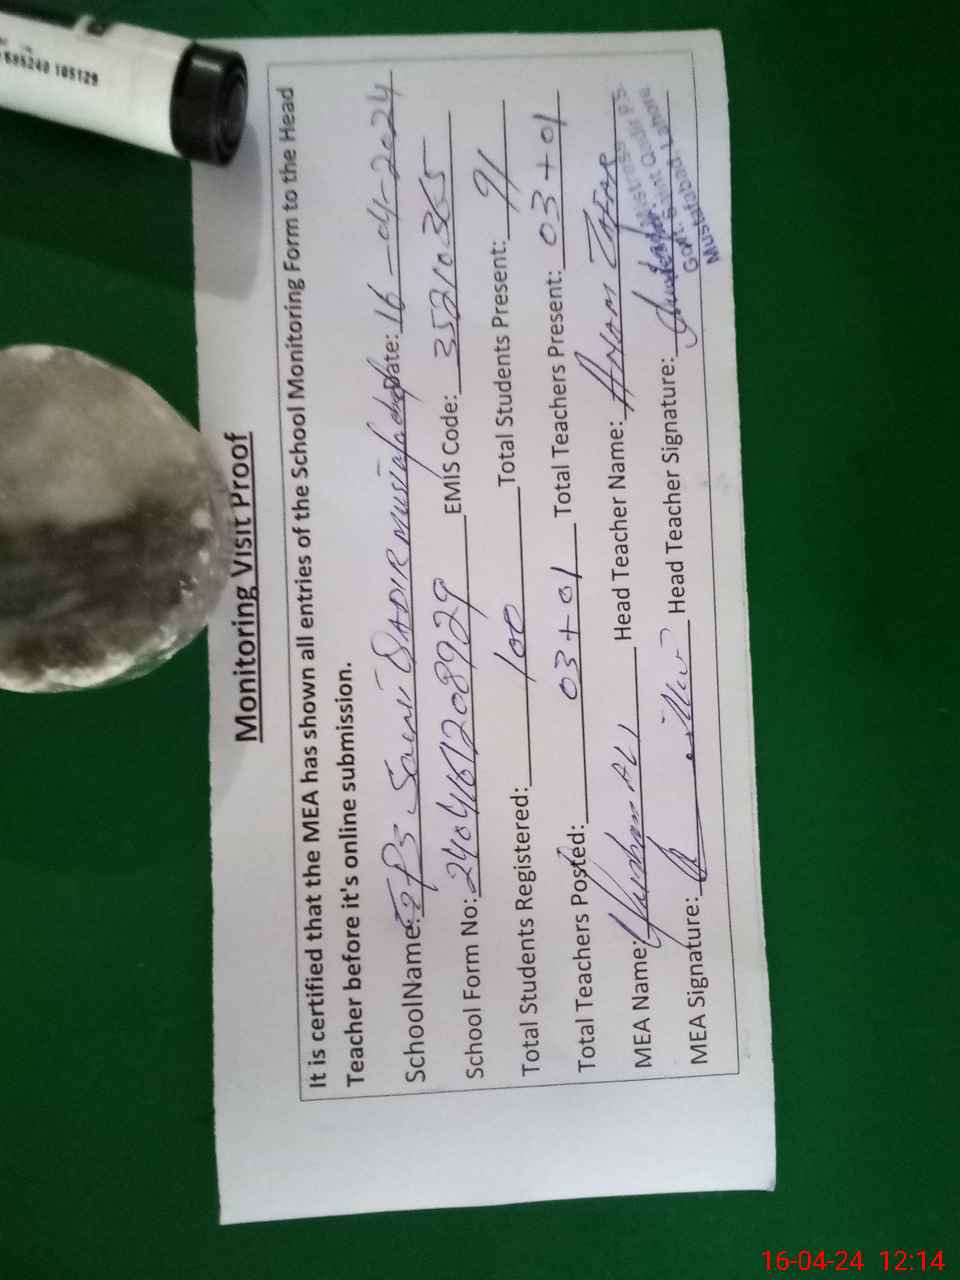 Monitoring Visit Proof
It is certified that the MEA has shown all entries of the School Monitoring Form to the Head
Teacher before it's online submission.
SchoolName: GPS Saint QADIR Mustafabad Date: 16-04-2024
School Form No: 2404161208929 EMIS Code: 35210365
Total Students Registered: 100 Total Students Present: 91
Total Teachers Posted: 03+01 Total Teachers Present: 03+01
MEA Name: ALI Head Teacher Name: ANAM ZAFAR
MEA Signature: Head Teacher Signature:
Mistress
Govt. Saint Qadir P.S.
Mustafabad, Lahore
685240 105129
16-04-24 12:14